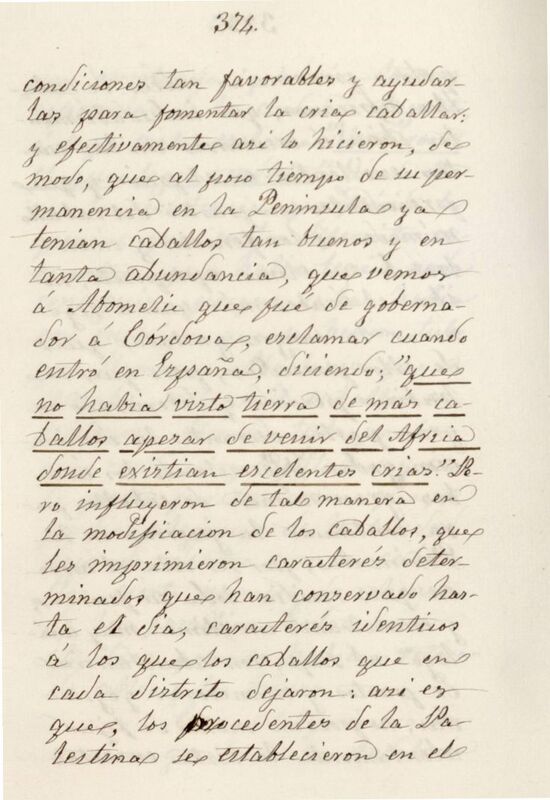 374.
condiciones tan favorables y ayudar-
las para fomentar la cria caballar:
y efectivamente asi lo hicieron, de
modo, que al poco tiempo de su per-
manencia en la Peninsula ya
tenian caballos tan buenos y en
tanta abundancia, que vemos
á Abomelic que fué de goberna-
dor á Córdova, esclamar cuando
entró en España, diciendo; "que
no habia visto tierra de más ca-
ballos apesar de venir del Africa
donde existian escelentes crias." Pe-
ro influyeron de tal manera en
la modificacion de los caballos, que
les imprimieron caracterés deter-
minados que han conservado has-
ta el dia, caracterés identicos
á los que los caballos que en
cada distrito dejaron: asi es
que, los procedentes de la Pa-
lestina se establecieron en el